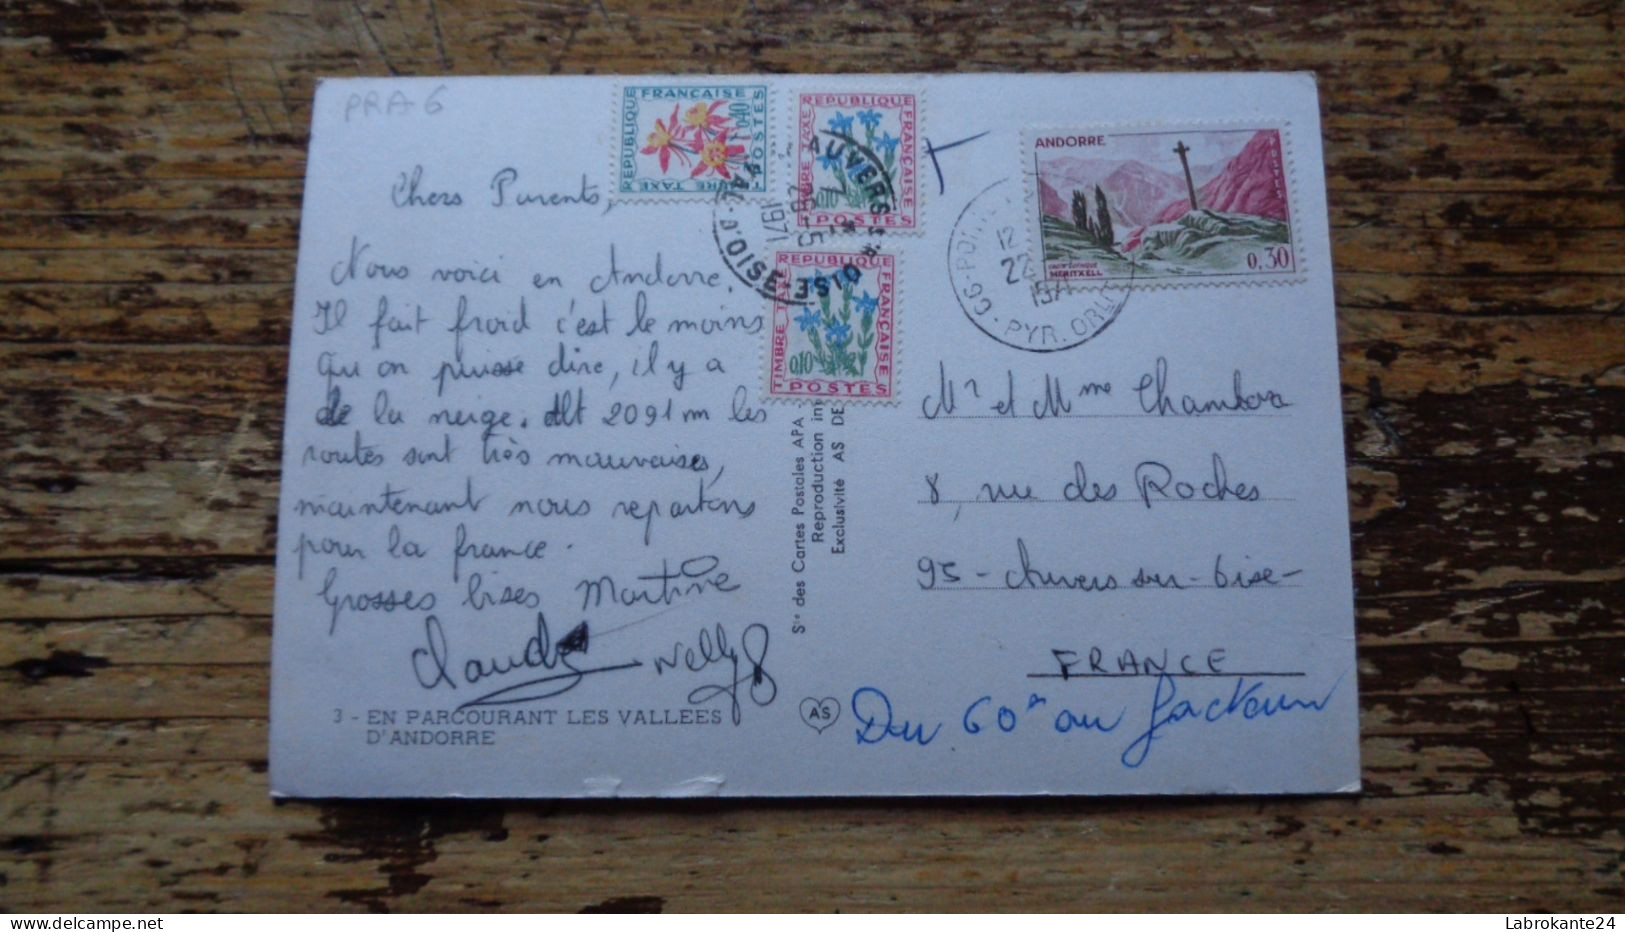 PRA 6
Chers Parents,
Nous voici en Andorre.
Il fait froid c'est le moins
qu'on puisse dire, il y a
de la neige. Alt 2091 m les
routes sont très mauvaises,
maintenant nous repartons
pour la france.
Grosses bises Martine
Claude Nelly
3 - EN PARCOURANT LES VALLEES
D'ANDORRE
REPUBLIQUE FRANÇAISE
0,40
POSTES
TIMBRE TAXE
REPUBLIQUE FRANÇAISE
TIMBRE TAXE
0,10
POSTES
REPUBLIQUE FRANÇAISE
TIMBRE TAXE
0,10
POSTES
AUVERS S. OISE
VAL-D'OISE
26-5
1971
T
ANDORRE
POSTES
MERITXELL
0,30
12
22
66 - PYR. ORLES
Sté des Cartes Postales APA
Reproduction
Exclusivité AS DE
AS
Mr et Mme
8, rue des Roches
95 - Auvers sur-Oise-
FRANCE
Du 60 au
Labrokante24